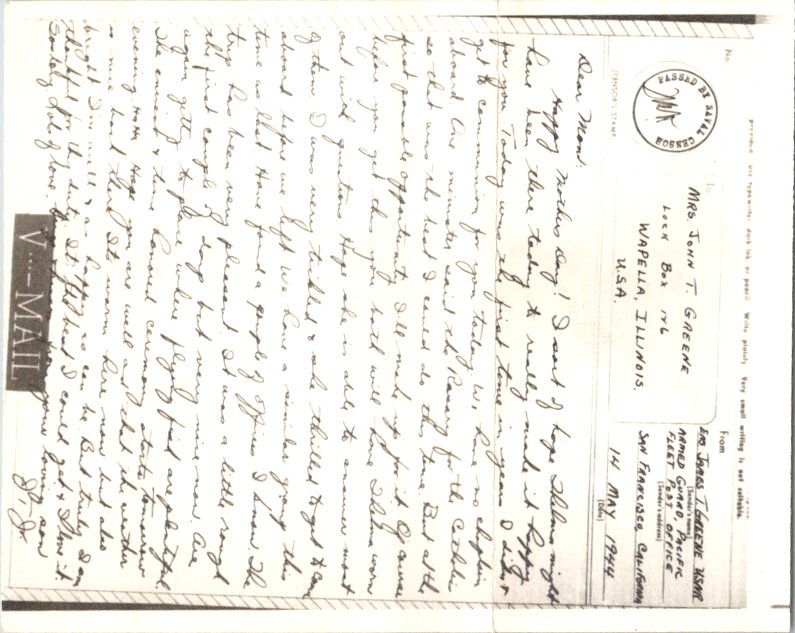 Use typewriter, dark ink, or pencil. Write plainly. Very small writing is not suitable.
No.
PASSED BY NAVAL CENSOR
(CENSOR'S STAMP)
To
MRS. JOHN T. GREENE
LOCK BOX 176
WAPELLA, ILLINOIS.
U.S.A.
From
ENS JAMES T. GREENE USNR
(Sender's name)
ARMED GUARD, PACIFIC
FLEET POST OFFICE
(Sender's address)
SAN FRANCISCO CALIFORNIA
14 MAY 1944
(Date)
Dear Mom:
Happy Mothers Day! I sort of hope Thelma might
have been there today to really make it happy
for you. Today was the first time in years I didn't
get to communion for you today. We have no chaplain
aboard. One minister said the Rosary for the Catholics
so that was the best I could do this time. But at the
first possible opportunity I'll make up for it. Of course
before you get this you both will have Thelma worn
out with questions. Hope she is able to answer most
of them. I was very thrilled & she thrilled to get to come
aboard before we left. We have a similar group this
time as last. Have found a couple of officers I know. The
trip has been very pleasant. It was a little rough
the first couple of days but very nice now. Are
again getting to place where flying fish are plentiful.
The ancient & time honored ceremony starts tomorrow
evening. Hope you are well and that the weather
is nice back there. It's warm here now but also
bright. I'm well & as happy as can be. But truly I am
thankful for this duty. It's the best I could get & I love it.
So long. Lots of love. your loving son
J.T. Jr.
V···—MAIL